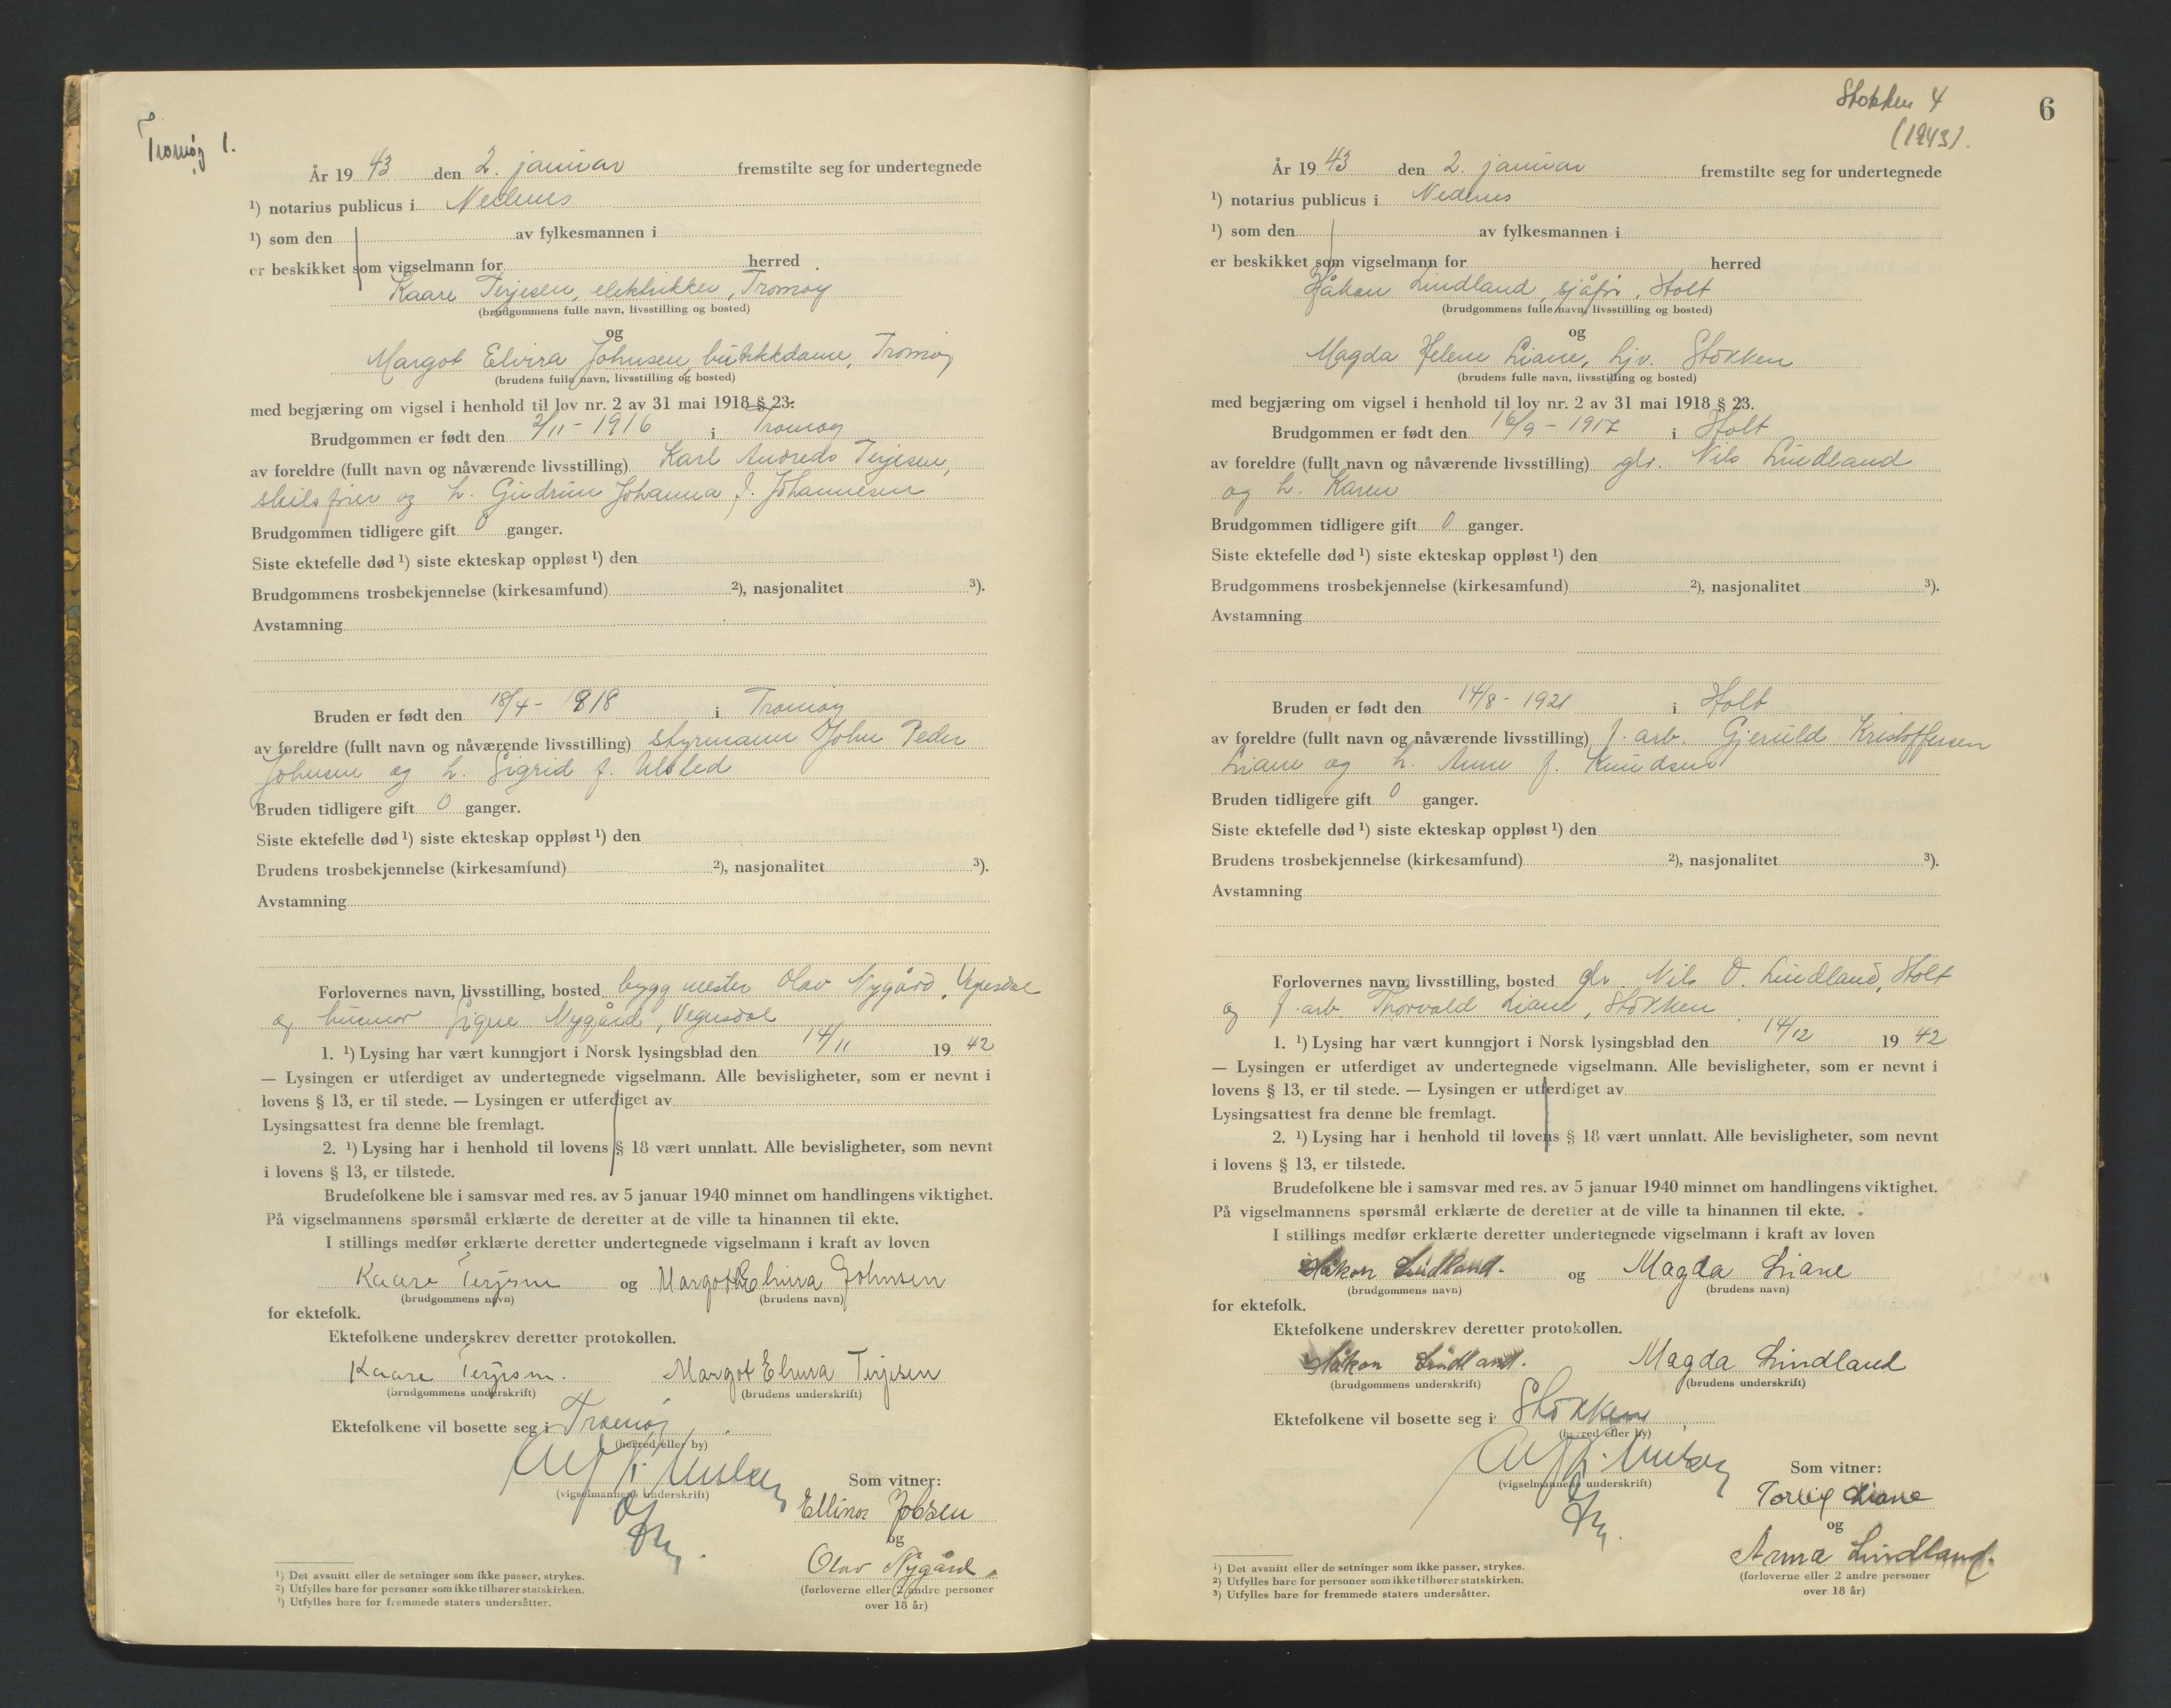 Tromøy 1.
År 19 43 den 2. januar fremstilte seg for undertegnede
¹) notarius publicus i Nedenes
¹) som den av fylkesmannen i
er beskikket som vigselmann for herred
Kaare Terjesen, elektrikker, Tromøy
(brudgommens fulle navn, livsstilling og bosted)
og
Margot Elvira Johnsen, butikkdame, Tromøy
(brudens fulle navn, livsstilling og bosted)
med begjæring om vigsel i henhold til lov nr. 2 av 31 mai 1918 § 23.
Brudgommen er født den 2/11 - 1916 i Tromøy
av foreldre (fullt navn og nåværende livsstilling) Karl Andreas Terjesen,
og h. Gudrun Johanna f. Johannesen
Brudgommen tidligere gift 0 ganger.
Siste ektefelle død ¹) siste ekteskap oppløst ¹) den
Brudgommens trosbekjennelse (kirkesamfund) ²), nasjonalitet ³).
Avstamning
Bruden er født den 18/4 - 1918 i Tromøy
av foreldre (fullt navn og nåværende livsstilling) styrmann John Peder
Johnsen og h. Sigrid f. Ulsted
Bruden tidligere gift 0 ganger.
Siste ektefelle død ¹) siste ekteskap oppløst ¹) den
Brudens trosbekjennelse (kirkesamfund) ²), nasjonalitet ³).
Avstamning
Forlovernes navn, livsstilling, bosted byggmester Olav Nygård, Vegusdal
og husmor Signe Nygård, Vegusdal
1. ¹) Lysing har vært kunngjort i Norsk lysingsblad den 14/11 19 42
— Lysingen er utferdiget av undertegnede vigselmann. Alle bevisligheter, som er nevnt i
lovens § 13, er til stede. — Lysingen er utferdiget av
Lysingsattest fra denne ble fremlagt.
2. ¹) Lysing har i henhold til lovens § 18 vært unnlatt. Alle bevisligheter, som nevnt
i lovens § 13, er tilstede.
Brudefolkene ble i samsvar med res. av 5 januar 1940 minnet om handlingens viktighet.
På vigselmannens spørsmål erklærte de deretter at de ville ta hinannen til ekte.
I stillings medfør erklærte deretter undertegnede vigselmann i kraft av loven
Kaare Terjesen og Margot Elvira Johnsen
(brudgommens navn) (brudens navn)
for ektefolk.
Ektefolkene underskrev deretter protokollen.
Kaare Terjesen. Margot Elvira Terjesen
(brudgommens underskrift) (brudens underskrift)
Ektefolkene vil bosette seg i Tromøy
(herred eller by)
(vigselmannens underskrift) Som vitner:
Ellinor Jobsen
og
Olav Nygård.
(forloverne eller 2 andre personer
over 18 år)
¹) Det avsnitt eller de setninger som ikke passer, strykes.
²) Utfylles bare for personer som ikke tilhører statskirken.
³) Utfylles bare for fremmede staters undersåtter.
Stokken 4
(1943).
6
År 19 43 den 2. januar fremstilte seg for undertegnede
¹) notarius publicus i Nedenes
¹) som den av fylkesmannen i
er beskikket som vigselmann for herred
Håkon Lindland, sjåfør, Holt
(brudgommens fulle navn, livsstilling og bosted)
og
Magda Helene Liane, hjv. Stokken
(brudens fulle navn, livsstilling og bosted)
med begjæring om vigsel i henhold til lov nr. 2 av 31 mai 1918 § 23.
Brudgommen er født den 16/9 - 1917 i Holt
av foreldre (fullt navn og nåværende livsstilling) gbr. Nils Lindland
og h. Karen
Brudgommen tidligere gift 0 ganger.
Siste ektefelle død ¹) siste ekteskap oppløst ¹) den
Brudgommens trosbekjennelse (kirkesamfund) ²), nasjonalitet ³).
Avstamning
Bruden er født den 14/8 - 1921 i Holt
av foreldre (fullt navn og nåværende livsstilling) f. arb. Gjeruld Kristoffersen
Liane og h. Anne f. Knudsen
Bruden tidligere gift 0 ganger.
Siste ektefelle død ¹) siste ekteskap oppløst ¹) den
Brudens trosbekjennelse (kirkesamfund) ²), nasjonalitet ³).
Avstamning
Forlovernes navn, livsstilling, bosted gbr. Nils O. Lindland, Holt
og f. arb. Thorvald Liane, Stokken
1. ¹) Lysing har vært kunngjort i Norsk lysingsblad den 14/12 19 42
— Lysingen er utferdiget av undertegnede vigselmann. Alle bevisligheter, som er nevnt i
lovens § 13, er til stede. — Lysingen er utferdiget av
Lysingsattest fra denne ble fremlagt.
2. ¹) Lysing har i henhold til lovens § 18 vært unnlatt. Alle bevisligheter, som nevnt
i lovens § 13, er tilstede.
Brudefolkene ble i samsvar med res. av 5 januar 1940 minnet om handlingens viktighet.
På vigselmannens spørsmål erklærte de deretter at de ville ta hinannen til ekte.
I stillings medfør erklærte deretter undertegnede vigselmann i kraft av loven
Håkon Lindland. og Magda Liane
(brudgommens navn) (brudens navn)
for ektefolk.
Ektefolkene underskrev deretter protokollen.
Håkon Lindland. Magda Lindland
(brudgommens underskrift) (brudens underskrift)
Ektefolkene vil bosette seg i Stokken
(herred eller by)
(vigselmannens underskrift) Som vitner:
Liane
og
Anna Lindland.
(forloverne eller 2 andre personer
over 18 år)
¹) Det avsnitt eller de setninger som ikke passer, strykes.
²) Utfylles bare for personer som ikke tilhører statskirken.
³) Utfylles bare for fremmede staters undersåtter.